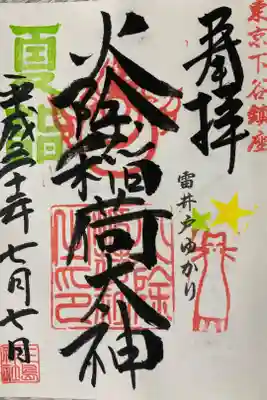 東京下谷鎮座
奉拝
雷井戸ゆかり
火除稲荷大神
夏詣
平成三十年七月七日